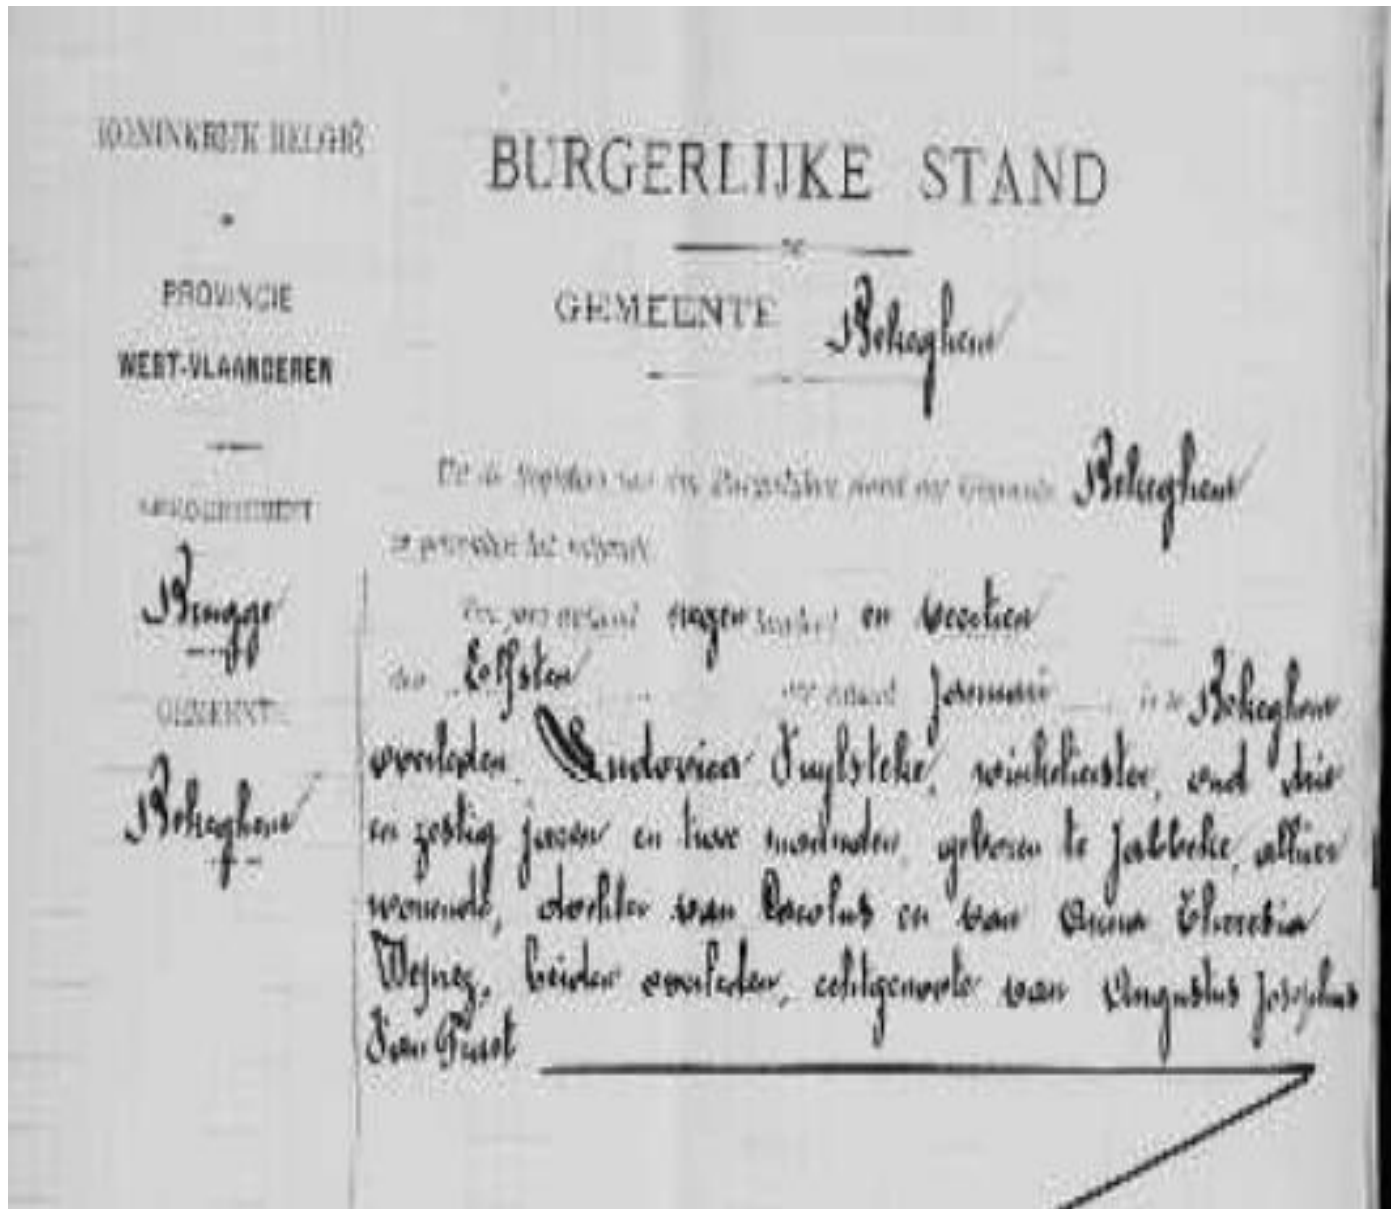 KONINKRIJK BELGIË
PROVINCIE
WEST-VLAANDEREN
ARRONDISSEMENT
Brugge
GEMEENTE
Bekeghem
BURGERLIJKE STAND
GEMEENTE Bekeghem
Uit de registers van den Burgerlijken stand der Gemeente Bekeghem
is getrokken het volgende
Ten jare duizend negen honderd en veertien
den Elfsten der maand Januari is te Bekeghem
overleden Ludovica Vuylsteke, winkelierster, oud drie
en zestig jaren en twee maanden, geboren te Jabbeke, alhier
wonende, dochter van Carolus en van Anna Theresia
beiden overleden, echtgenoote van Augustus Josephus
Van